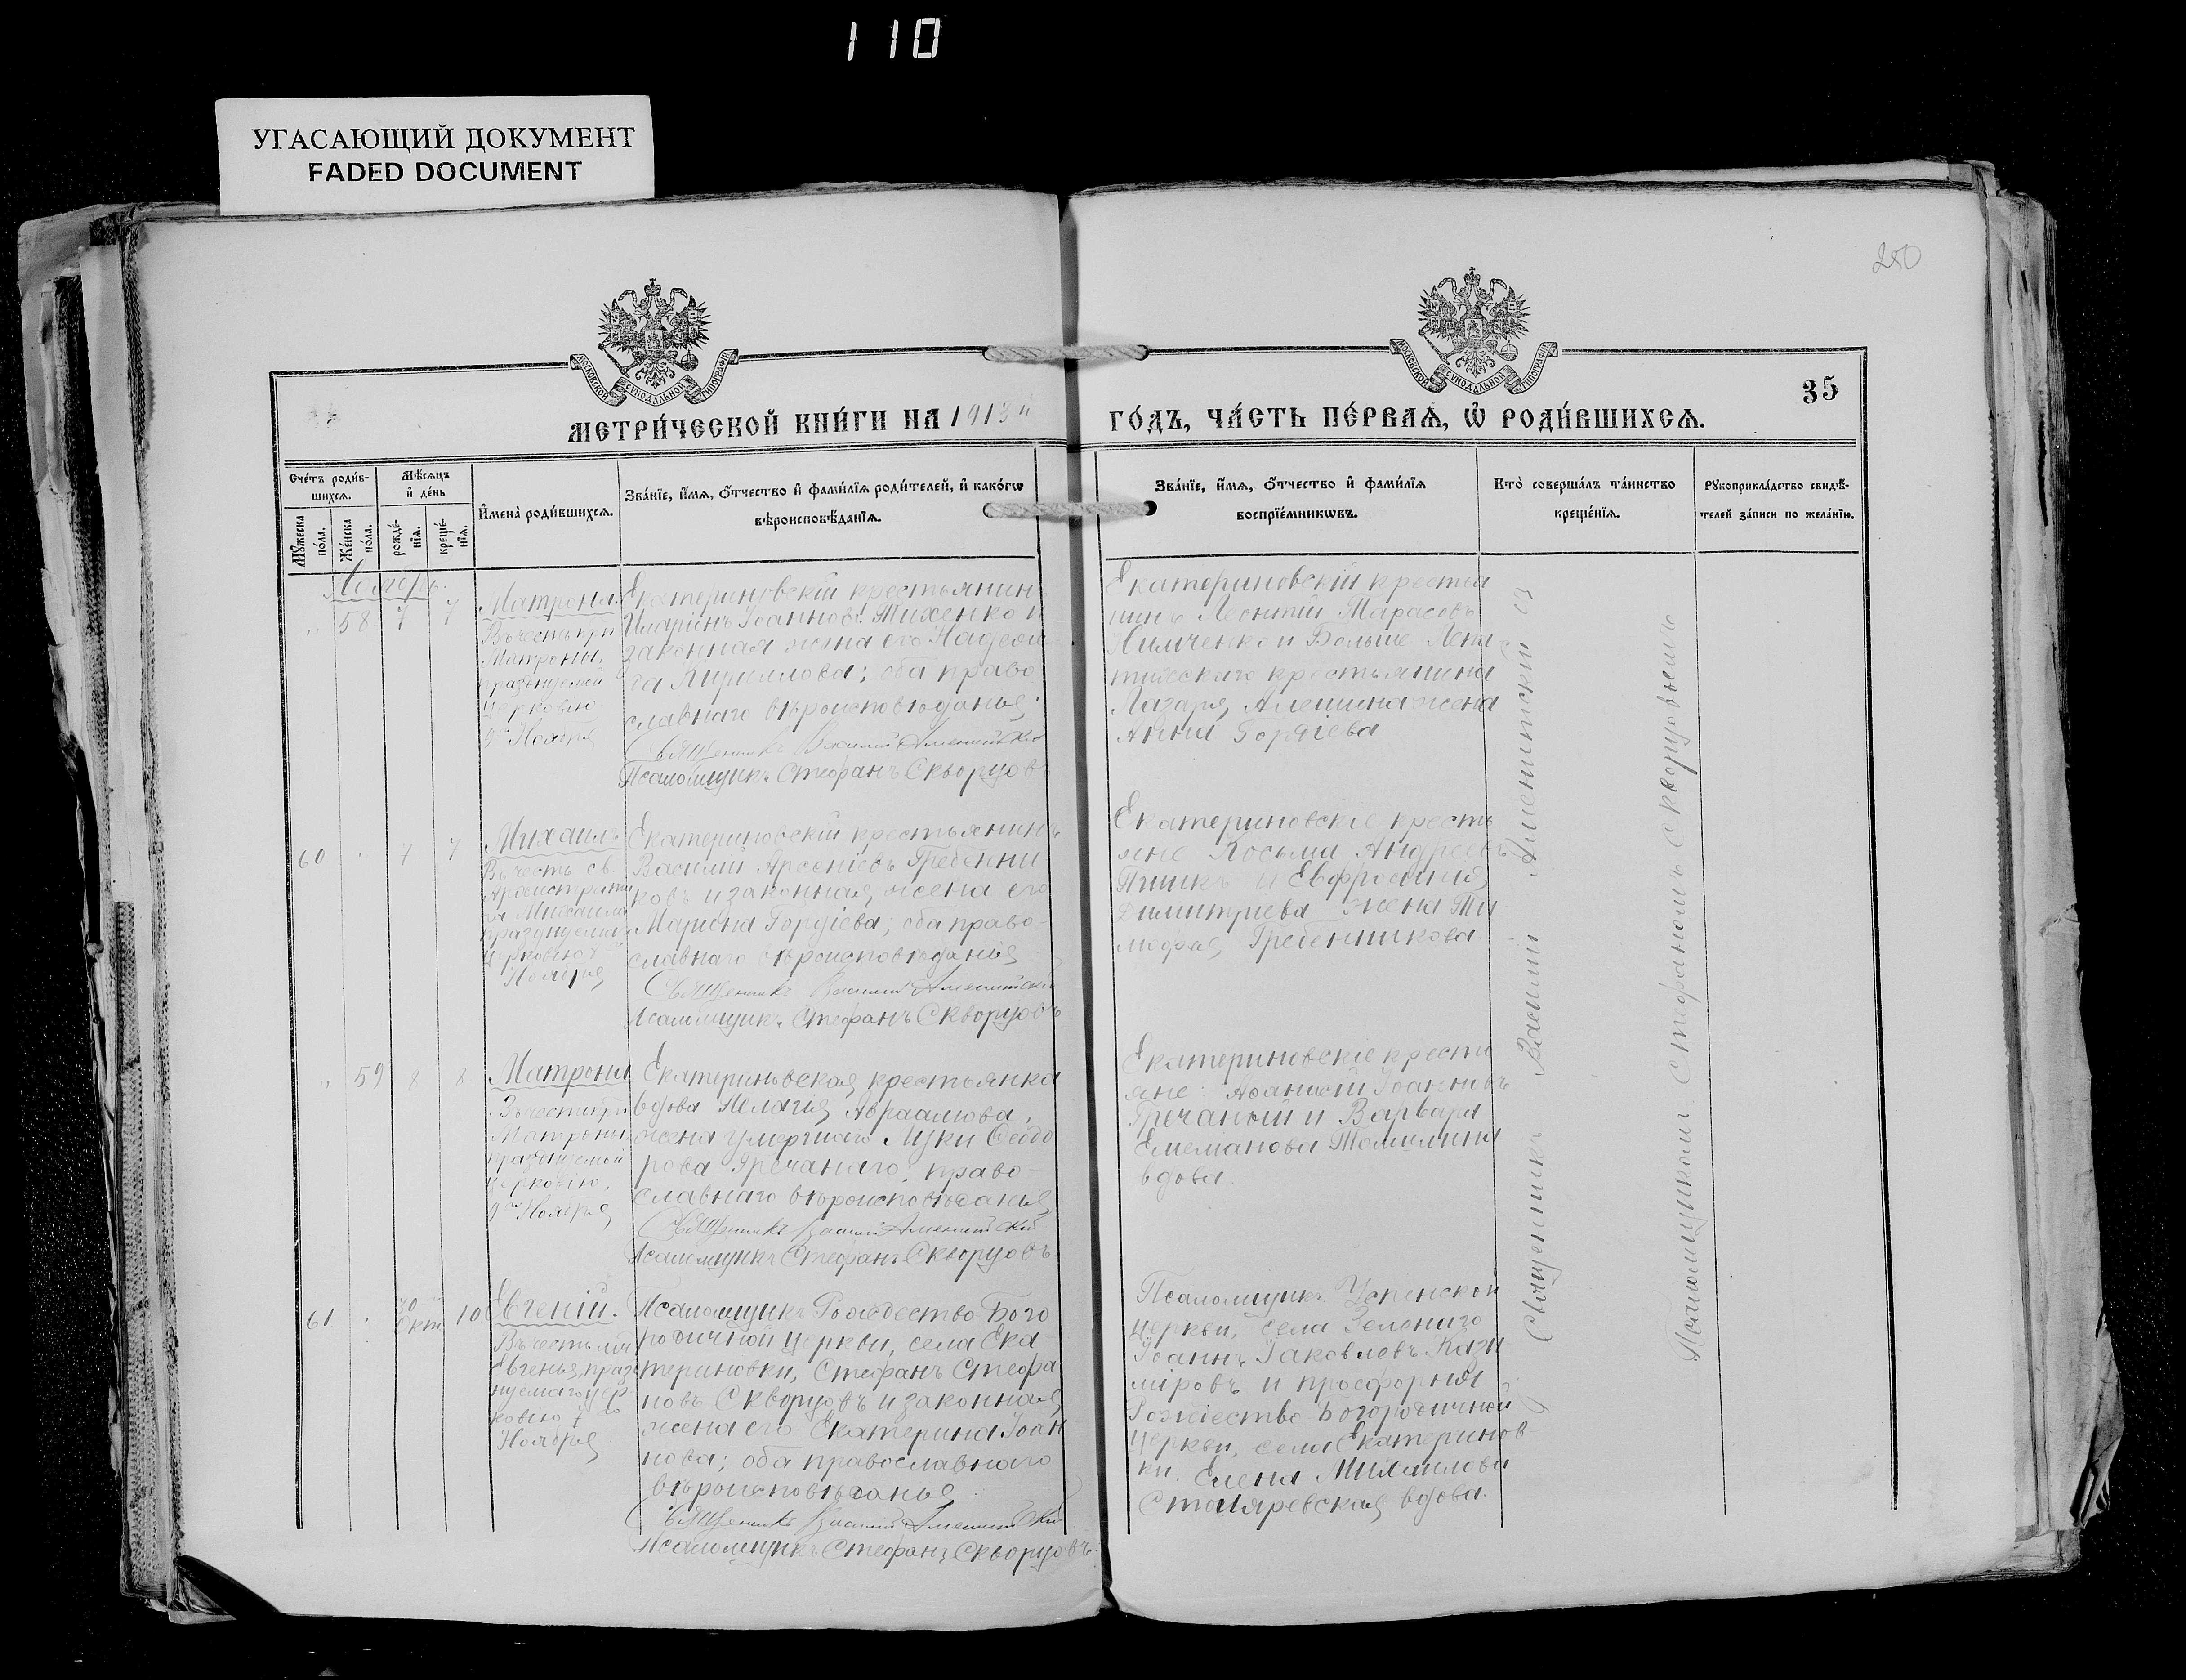 110
УГАСАЮЩИЙ ДОКУМЕНТ
FADED DOCUMENT
250
МОСКОВСКОЙ СѴНОДАЛЬНОЙ ТИПОГРАФІИ
МОСКОВСКОЙ СѴНОДАЛЬНОЙ ТИПОГРАФІИ
35
МЕТРИ́ЧЕСКОЙ КНИ́ГИ НА 1913й
ГО́ДЪ, ЧА́СТЬ ПЕ́РВАѦ, Ѡ҆ РОДИ́ВШИХСѦ.
Сче́тъ роди́в-
шихсѧ.
Мꙋ́жеска по́ла.
Же́нска по́ла.
Мѣ́сѧцъ
и҆ де́нь
рожде́-
нїѧ.
креще́-
нїѧ.
И҆мена̀ роди́вшихсѧ.
Зва́нїе, и҆́мѧ, ѻ҆́тчество и҆ фами́лїѧ роди́телей, и҆ како́гѡ
вѣроисповѣ́данїѧ.
Зва́нїе, и҆́мѧ, ѻ҆́тчество и҆ фами́лїѧ
воспрїе́мникѡвъ.
Кто̀ соверша́лъ та́инство
креще́нїѧ.
Рꙋкоприкла́дство свидѣ́-
телей за́писи по жела́нїю.
Ноябрь.
" 58 7 7
Матрона.
Въ честь прп
Матроны,
празднуемой
церковію
9го Ноября
Екатериновскій крестьянинъ
Иларіонъ Іоанновъ Тихенко и
законная жена его Надеж
да Кириллова; оба право
славнаго вѣроисповѣданія.
Священникъ Василій Аменитскій
Псаломщикъ Стефанъ Скворцовъ
Екатериновскій крестья
нинъ Леонтій Тарасовъ
Климченко и Больше
крестьянина
Лазаря Алешина жена
Анна Гордіева
60 " 7 7
Михаилъ.
Въ честь св.
Архистрати
га Михаила
празднуемаго
церковію 8
Ноября
Екатериновскій крестьянинъ
Василій Арсеніевъ Гребенни
ковъ и законная жена его
Маріона Гордіева; оба право-
славнаго вѣроисповѣданія
Священникъ Василій Аменитскій
Псаломщикъ Стефанъ Скворцовъ
Екатериновскіе кресть
яне Косьма Андреевъ
и Евфросинія
Димитріева жена Ти
мофея Гребенникова.
" 59 8 8
Матрона
Въ честь прп
Матроны
празднуемой
церковію,
9го Ноября
Екатериновская крестьянка
вдова Пелагія Авраамова,
жена умершаго Луки Ѳеодо
рова Гречанаго, право-
славнаго вѣроисповѣданія
Священникъ Василій Аменитскій
Псаломщикъ Стефанъ Скворцовъ
Екатериновскіе кресть
яне Аѳанасій Іоанновъ
Гречаный и Варвара
Емеліанова Томилина
вдова.
61 " Окт 10
Евгеній.
Въ честь мч
Евгенія, праз
нуемаго цер
ковію 7го
Ноября.
Псаломщикъ Рождество Бого
родичной церкви, села Ека
териновки, Стефанъ Стефа
новъ Скворцовъ и законная
жена его Екатерина Іоан
нова; оба православнаго
вѣроисповѣданія
Священникъ Василій Аменитскій
Псаломщикъ Стефанъ Скворцовъ.
Псаломщикъ Успенской
церкви, села Зеленаго
Іоаннъ Іаковлевъ Кази
міровъ и просфорня
Рождество-Богородичной
церкви, села Екатеринов
ки, Елена Михаилова
Столяревская вдова.
Священникъ Василій Аменитскій съ
Псаломщикомъ Стефаномъ Скворцовымъ